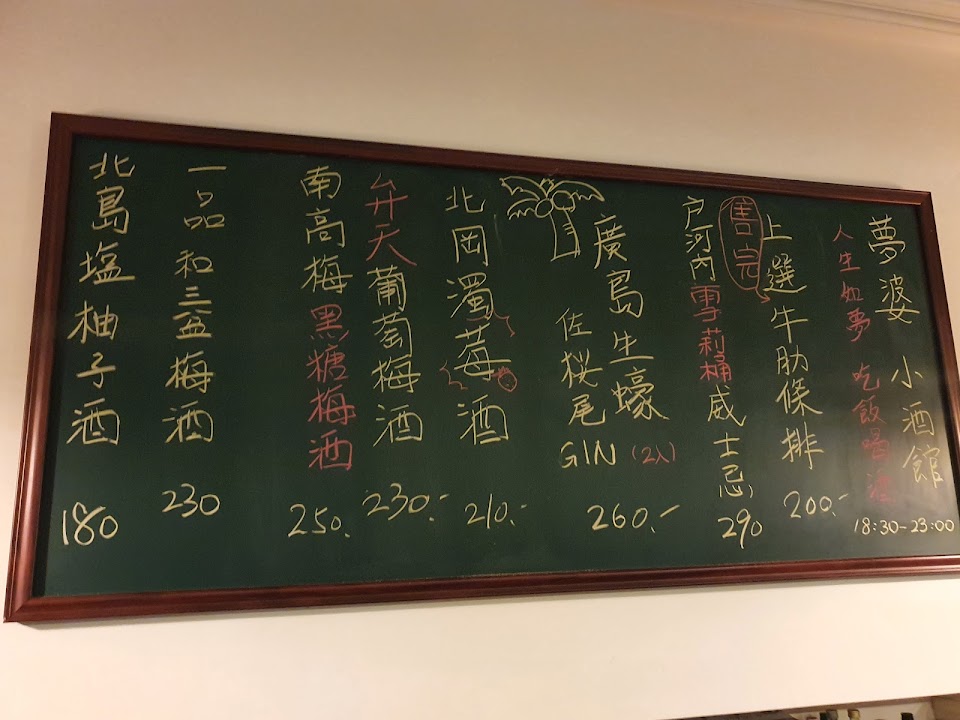 夢婆 小酒館
人生如夢 吃飯喝酒
18:30~23:00
上選牛肋條排
200.-
售完
戶河內雪莉桶威士忌)
290
廣島生蠔
佐桜尾GIN (2入)
260.-
北岡濁莓酒
210.-
弁天葡萄梅酒
230.-
南高梅黑糖梅酒
250.
一品和三盆梅酒
230
北島塩柚子酒
180